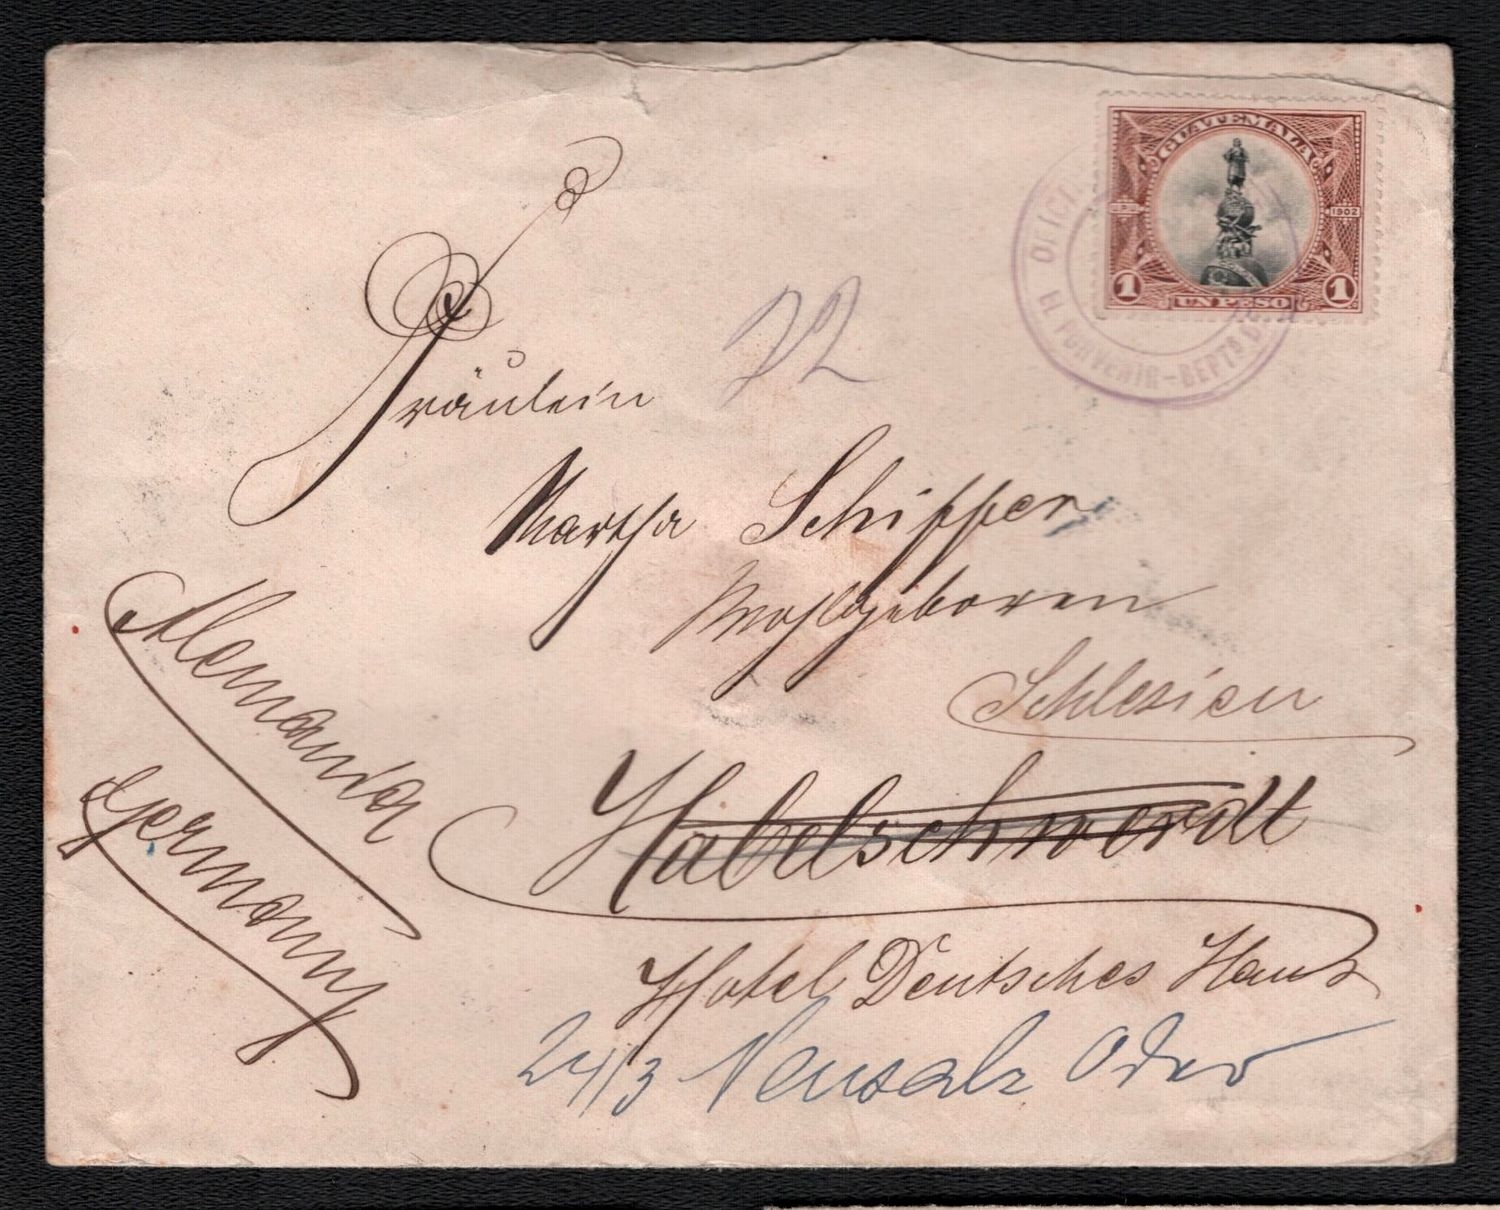 GUATEMALA
1902
1 UN PESO 1
EL PORVENIR - DEPTO D
Fräulein
22
Martha Schiffer
Wohlgeboren
Schlesien
Habelschwerdt
Hotel Deutsches Haus
24/3 Neusalz Oder
Alemania
Germany